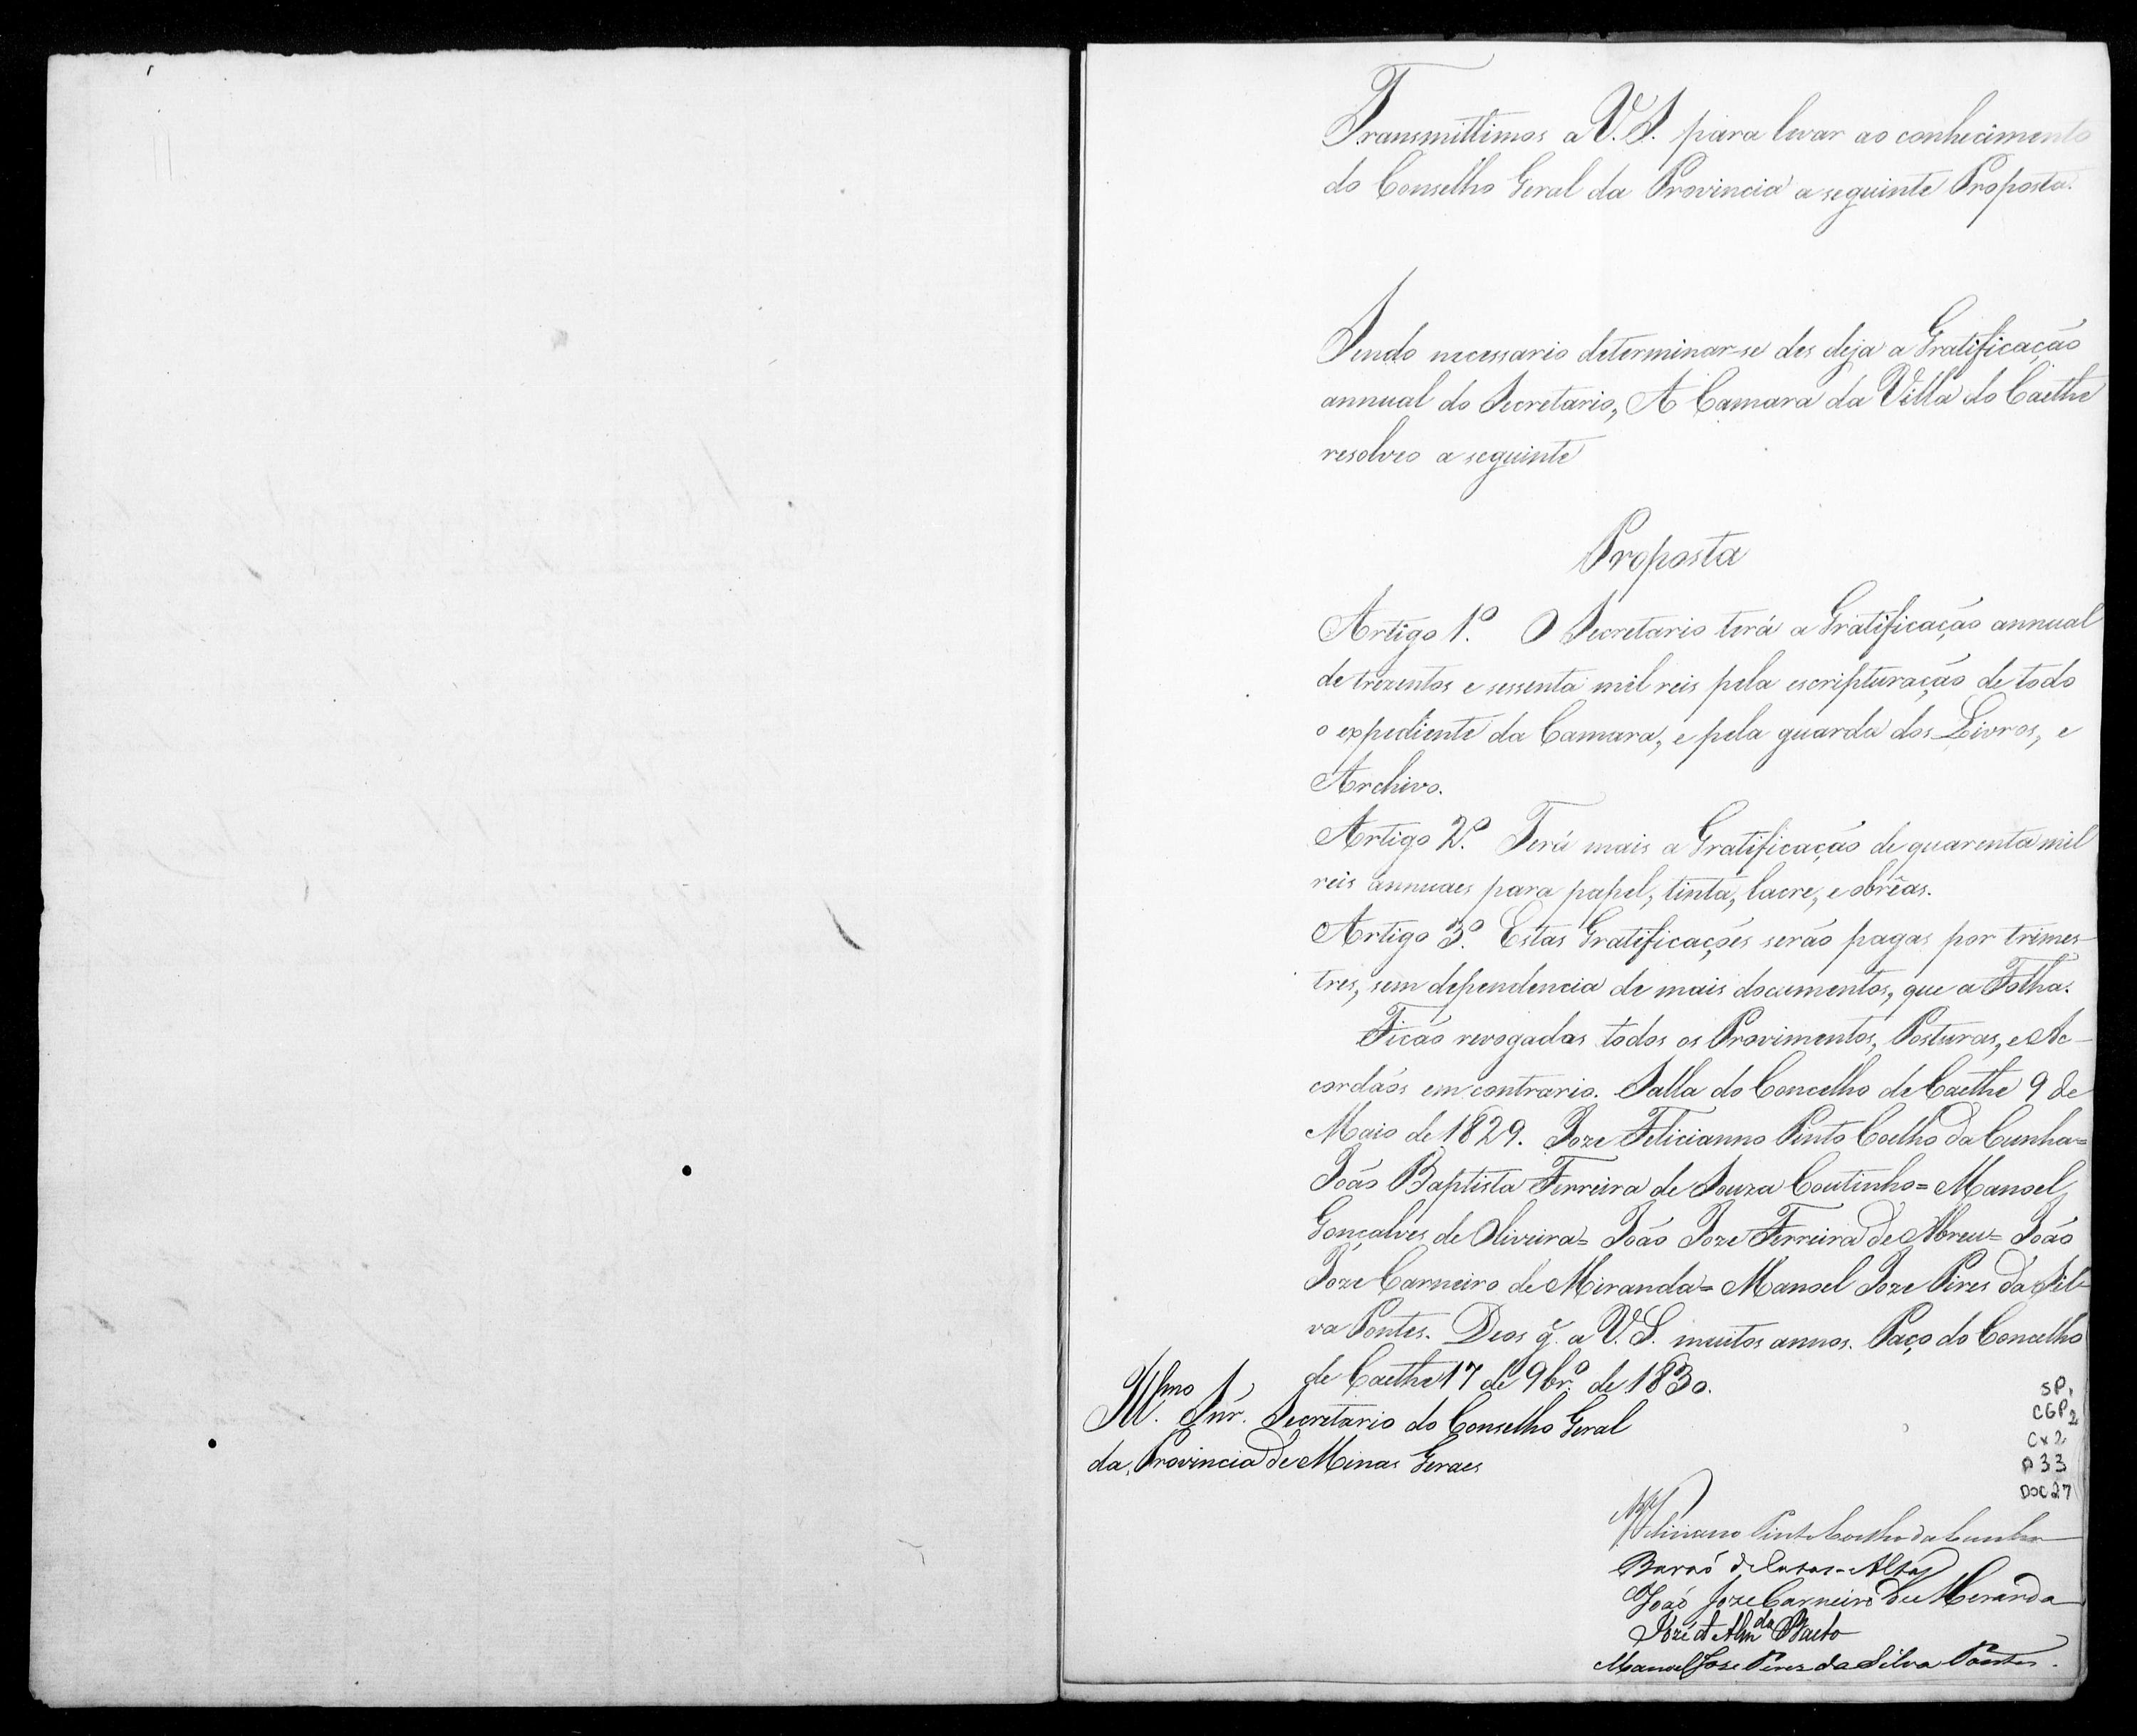 Transmittimos a V. S. para levar ao conhecimento
do Conselho Geral da Provincia a seguinte Proposta.
Sendo necessario determinar-se des deja a Gratificação
annual do Secretario, A Camara da Villa do Caethe
resolveo a seguinte
Proposta
Artigo 1.º O Secretario terá a Gratificação annual
de trezentos e sessenta mil reis pela escripturação de todo
o expediente da Camara, e pela guarda dos Livros, e
Archivo.
Artigo 2.º Terá mais a Gratificação de quarenta mil
reis annuaes para papel, tinta, lacre, e obrêas.
Artigo 3.º Estas Gratificações serão pagas por trimes-
tres, sem dependencia de mais documentos, que a Folha.
Ficão revogadas todos os Provimentos, Posturas, e Ac-
cordãos em contrario. Salla do Concelho de Caethe 9 de
Maio de 1829. Joze Felicianno Pinto Coelho da Cunha=
João Baptista Ferreira de Souza Coutinho= Manoel
Gonçalves de Oliveira= João Joze Ferreira de Abreu= João
Joze Carneiro de Miranda= Manoel Joze Pires da Sil-
va Pontes. Deos g. a V. S. muitos annos. Paço do Concelho
de Caethe 17 de 9br.º de 1830.
Ill.mo Snr. Secretario do Conselho Geral
da Provincia de Minas Geraes
SP,
CGP2
Cx 2
P 33
DOC 27
Feliciano Pinto Coelho da Cunha
Barão de Catas-Altas
João Joze Carneiro de Meranda
Manoel Jose Peres da Silva Pontes.